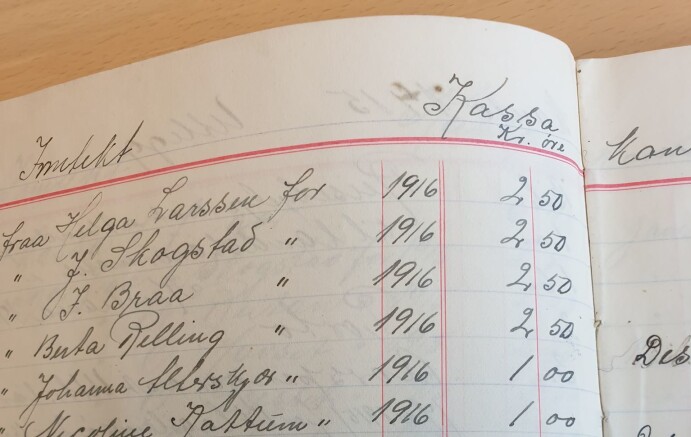 Kassa
Kr. øre
Inntekt
fraa Helga Larssen for 1916 2 50
" J. Skogstad " 1916 2 50
" J. Braa " 1916 2 50
" Berta Relling " 1916 2 50
" Johanna " 1916 1 00
" Nicoline " 1916 1 00
kon
Des